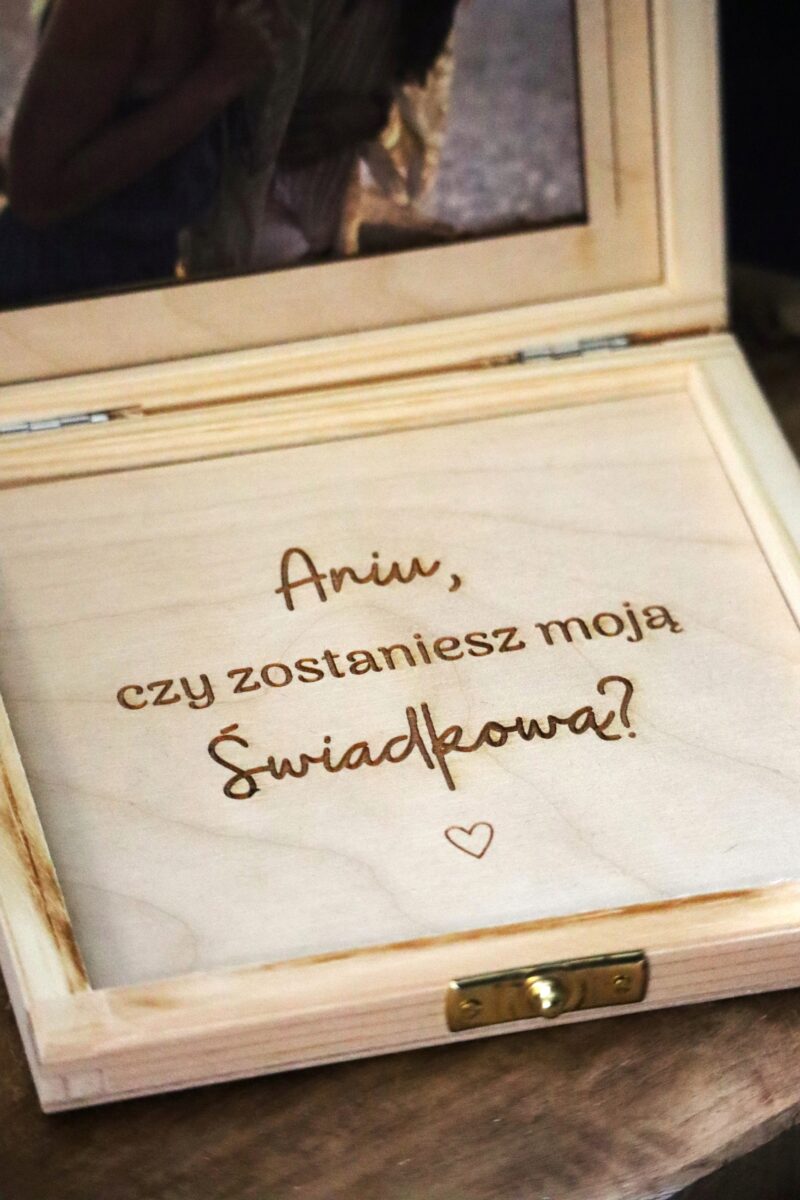 Aniu,
czy zostaniesz moją
Świadkową?